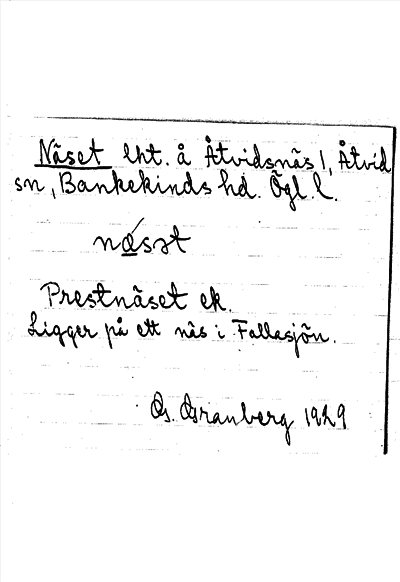 Näset lht. å Åtvidsnäs 1, Åtvid
sn, Bankekinds hd. Ögl. l.
næ̀sət
Prestnäset ek.
Ligger på ett näs i Fallasjön.
G. Granberg 1929